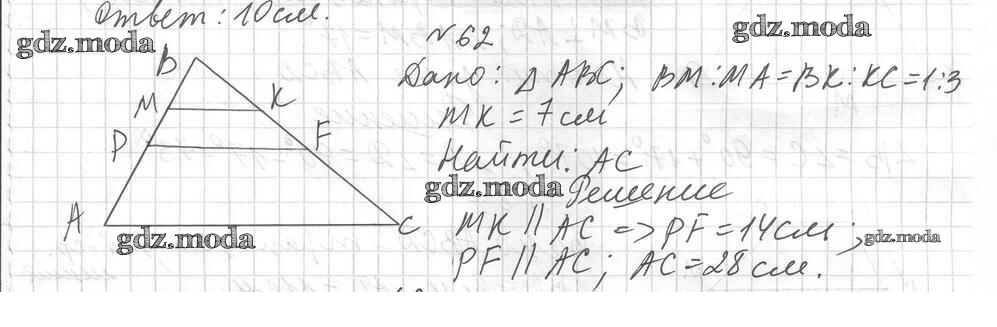 Ответ: 10 см.
gdz.moda
gdz.moda
№62
B
Дано: △ ABC; BM:MA=BK:KC=1:3
M
K
MK = 7 см
P
F
Найти: AC
gdz.moda
Решение
A
C
MK || AC => PF = 14 см;
gdz.moda
gdz.moda
PF || AC; AC = 28 см.